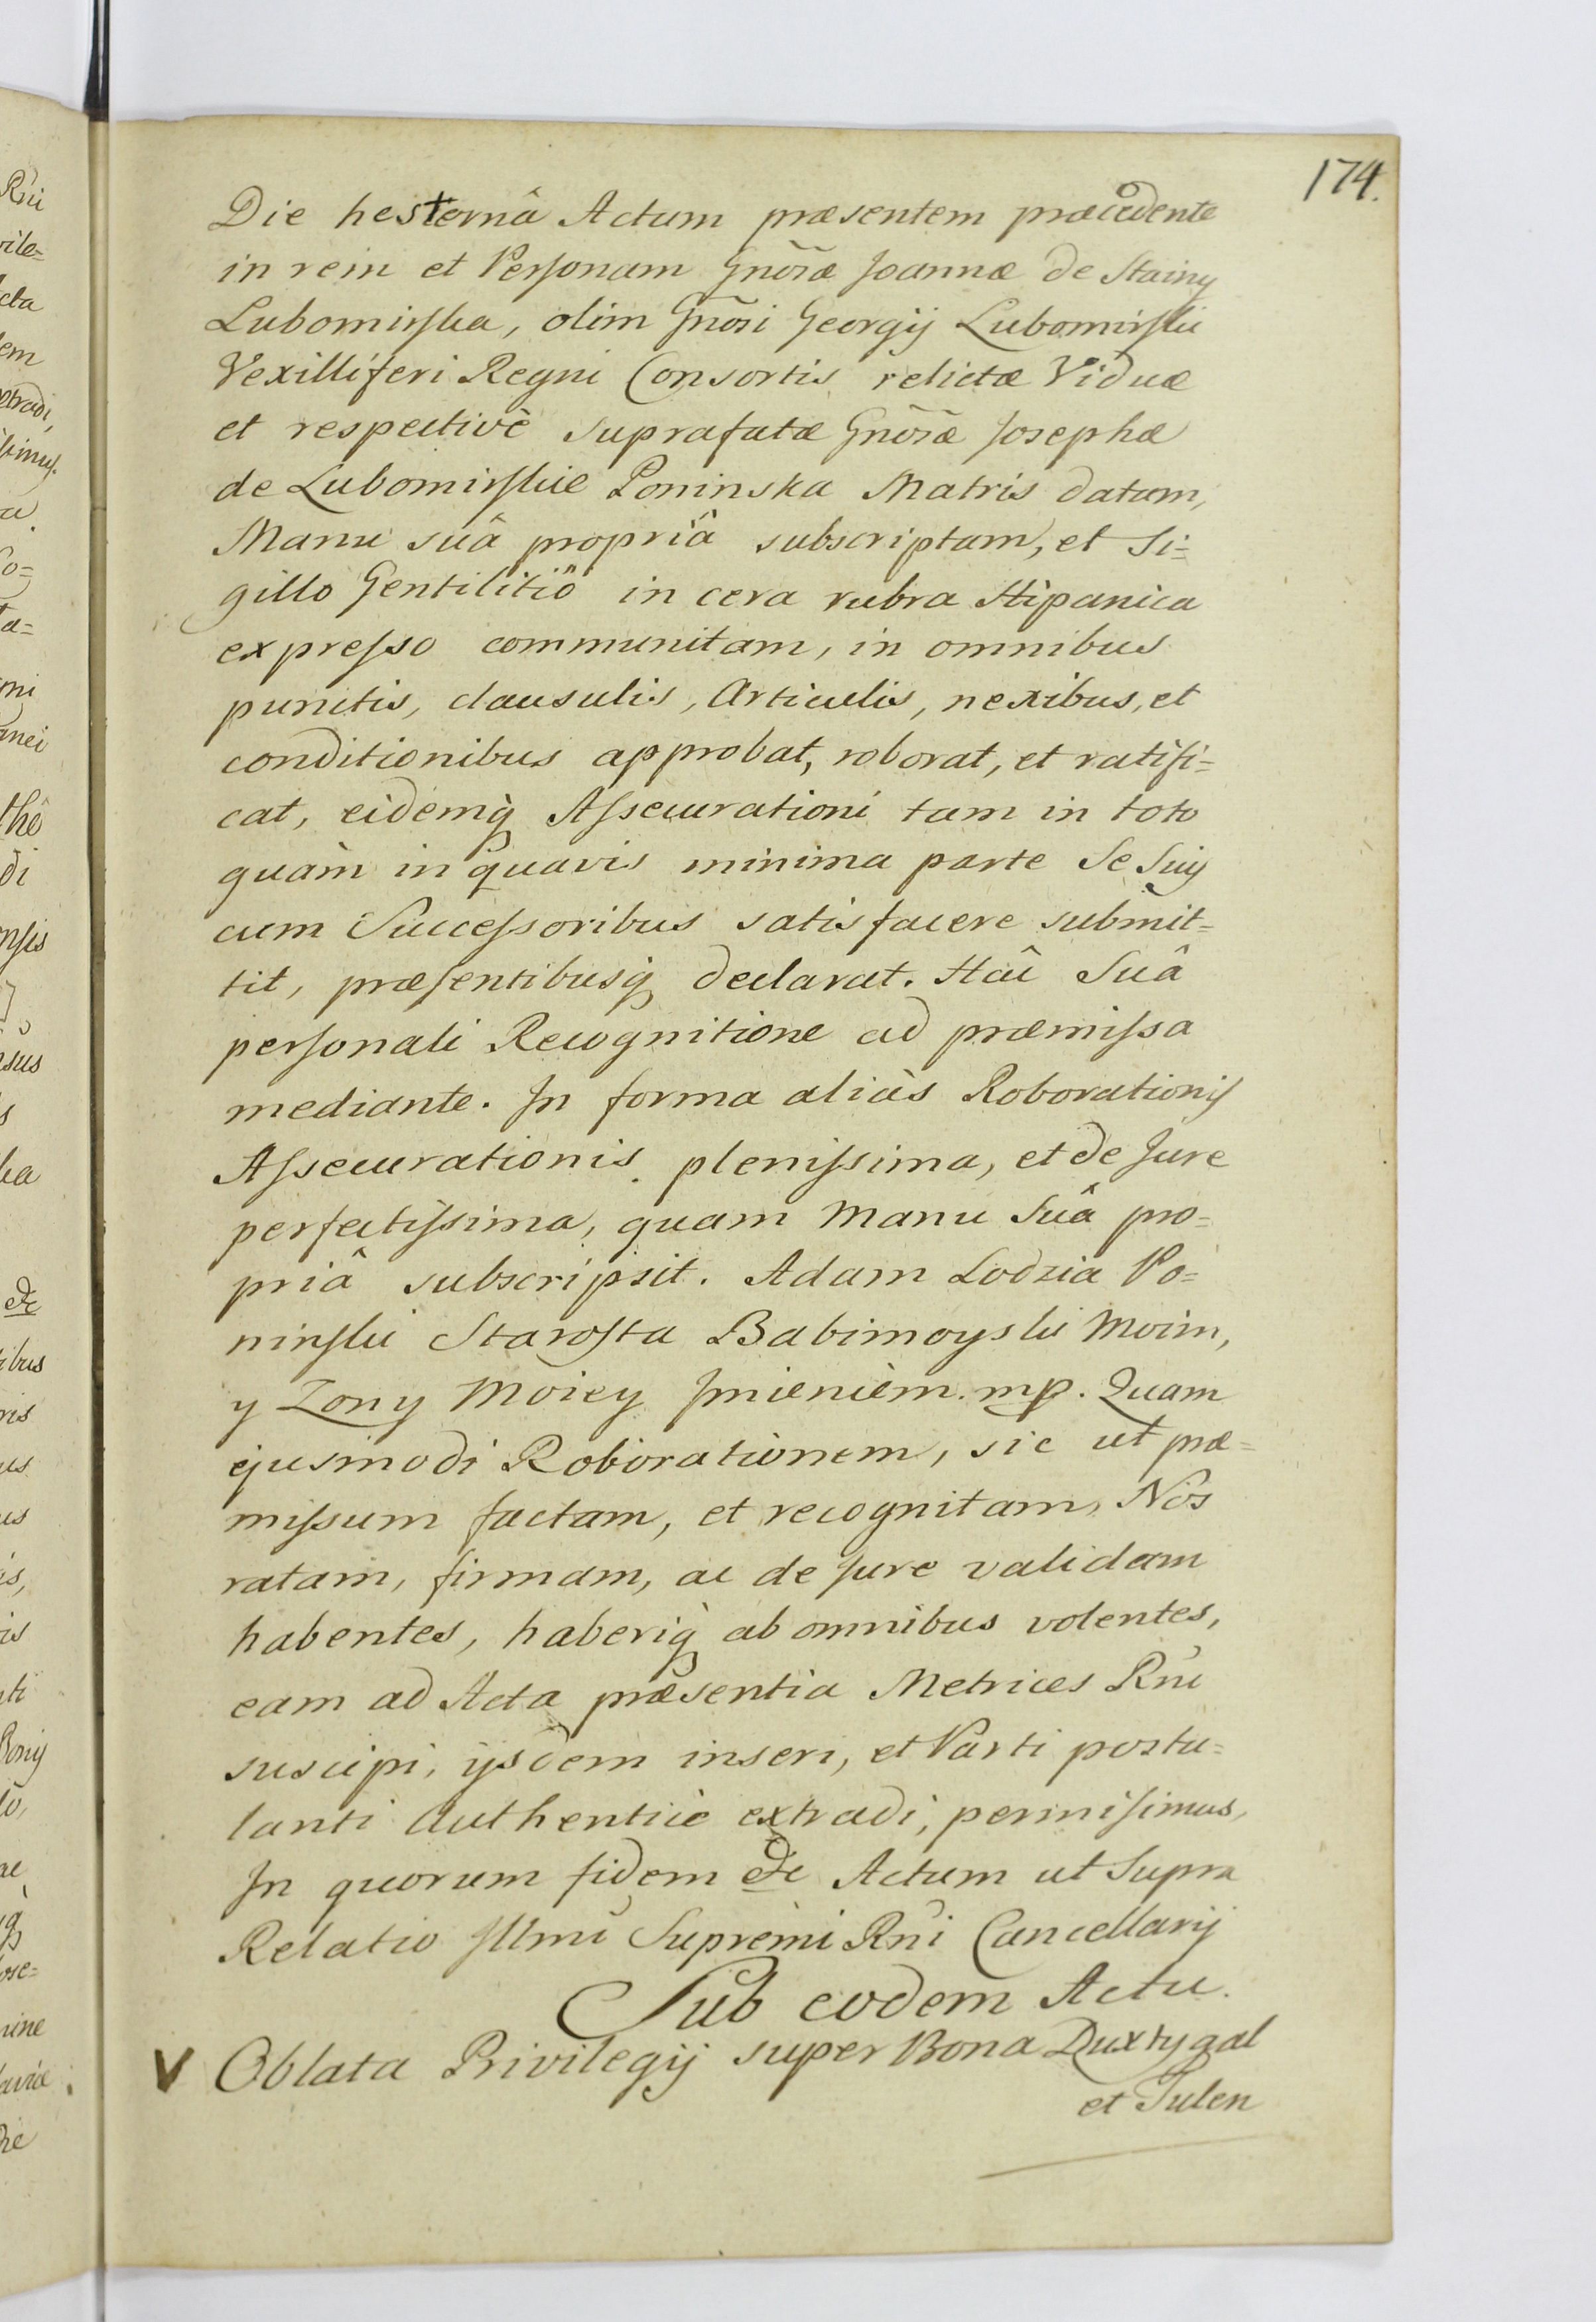 174.
Die hesternâ Actum præsentem præcedente
in rem et Personam Gnõsæ Joannæ de Stainy
Lubomirska, olim Gnõsi Georgij Lubomirski
Vexilliferi Regni Consortis relictæ Viduæ
et respectivè suprafatæ Gnõsæ Josephæ
de Lubomirskie Poninska Matris datam,
Manu suâ propriâ subscriptam, et Si=
gillo Gentilitiô in cera rubra Hispanica
expresso communitam, in omnibus
punctis, clausulis, Articulis, nexibus, et
conditionibus approbat, roborat, et ratifi=
cat, eidemq̀ Assecurationi tam in toto
quàm in quavis minima parte Se Suis
cum Successoribus satisfacere submit=
tit, præsentibusq̀ declarat. Hâc Suâ
personali Recognitione ad præmissa
mediante. In forma aliàs Roborationis
Assecurationis plenissima, et de Jure
perfectissima, quam Manu Suâ pro=
priâ subscripsit. Adam Lodzia Po=
ninski Starosta Babimoyski Moim,
y Zony Moiey Jmieniem. mp. Quam
ejusmodi Roborationem, sic ut præ=
missum factam, et recognitam, Nos
ratam, firmam, ac de Jure validam
habentes, haberiq̀ ab omnibus volentes,
eam ad Acta præsentia Metrices Rni
suscipi, ijsdem inseri, et Parti postu=
lanti Authentice extradi, permisimus,
In quorum fidem &c Actum ut Supra
Relatio Jllmi Supremi Rni Cancellarij
Sub eodem Actu.
V Oblata Privilegij super Bona Duxtygal
et Tulen